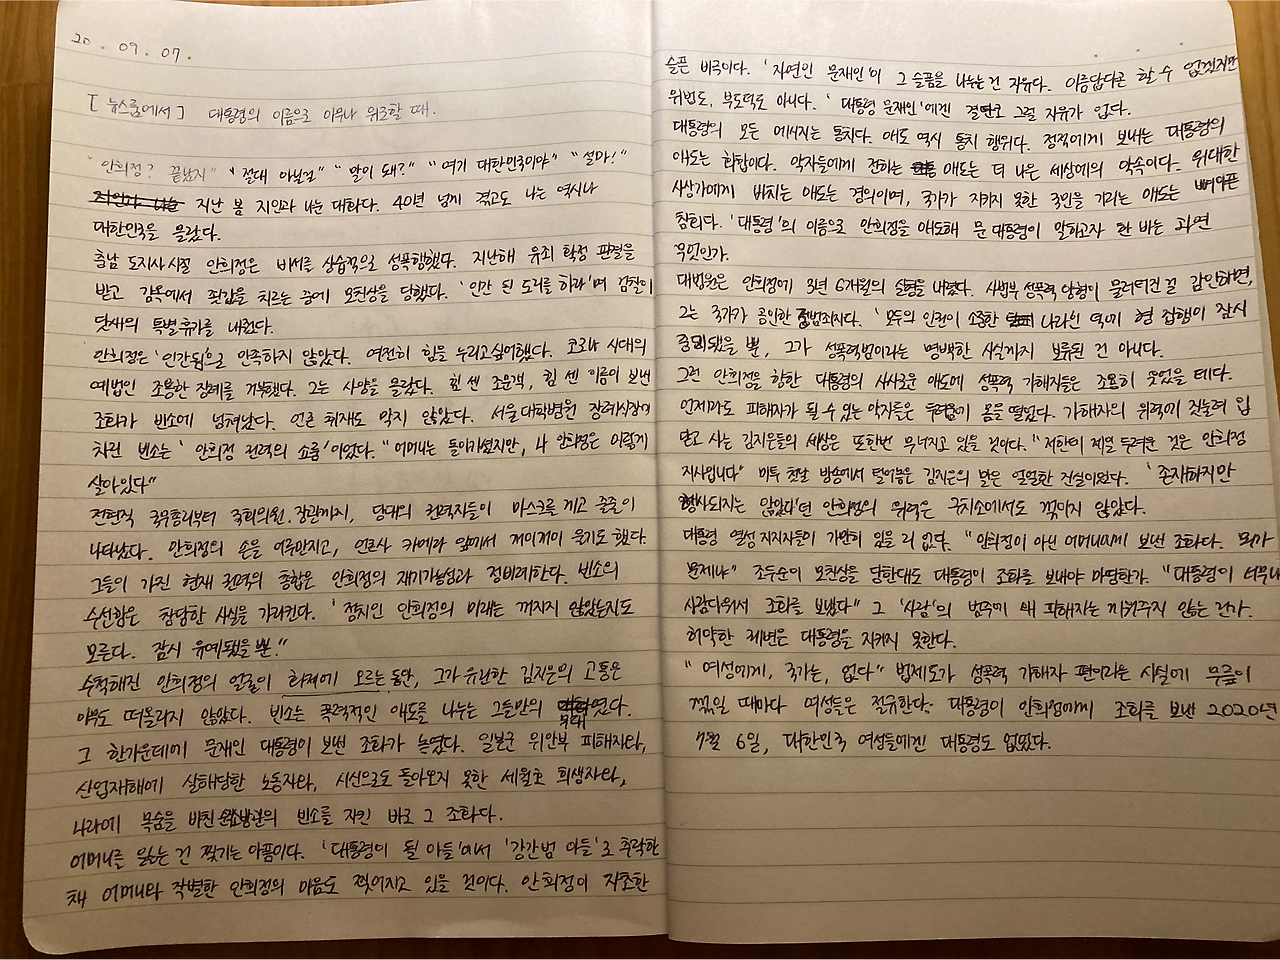 20. 09. 07.
[뉴스룸에서] 대통령의 이름으로 아무나 위로할 때.
"안희정? 끝났지" "절대 아닐걸" "말이 돼?" "여기 대한민국이야" "설마!"
지난 봄 지인과 나눈 대화다. 40년 넘게 겪고도 나는 역시나
대한민국을 몰랐다.
충남 도지사 시절 안희정은 비서를 상습적으로 성폭행했다. 지난해 유죄 확정 판결을
받고 감옥에서 죗값을 치르는 중에 모친상을 당했다. '인간 된 도리를 하라'며 검찰이
닷새의 특별휴가를 내줬다.
안희정은 '인간됨'으로 만족하지 않았다. 여전히 힘을 누리고 싶어했다. 코로나 시대의
예법인 조용한 장례를 거부했다. 그는 사양을 몰랐다. 힘 센 조문객, 힘 센 이름이 보낸
조화가 빈소에 넘쳐났다. 언론 취재도 막지 않았다. 서울대학병원 장례식장에
차린 빈소는 '안희정 권력의 쇼룸'이었다. "어머니는 돌아가셨지만, 나 안희정은 이렇게
살아있다"
전현직 국무총리부터 국회의원, 장관까지, 당대의 권력자들이 마스크를 끼고 줄줄이
나타났다. 안희정의 손을 어루만지고, 언론사 카메라 앞에서 꺼이꺼이 울기도 했다.
그들이 가진 현재 권력의 총합은 안희정의 재기가능성과 정비례한다. 빈소의
수선함은 참담한 사실을 가리킨다. '정치인 안희정의 미래는 꺼지지 않았는지도
모른다. 잠시 유예됐을 뿐."
수척해진 안희정의 얼굴이 화제에 오르는 동안, 그가 유린한 김지은의 고통은
아무도 떠올리지 않았다. 빈소는 폭력적인 애도를 나누는 그들만의 무대였다.
그 한가운데에 문재인 대통령이 보낸 조화가 놓였다. 일본군 위안부 피해자,
산업재해에 살해당한 노동자, 시신으로도 돌아오지 못한 세월호 희생자,
나라에 목숨을 바친 소방관의 빈소를 지킨 바로 그 조화다.
어머니를 잃는 건 찢기는 아픔이다. '대통령이 될 아들'에서 '강간범 아들'로 추락한
채 어머니와 작별한 안희정의 마음도 찢어지고 있을 것이다. 안희정이 자초한
슬픈 비극이다. '자연인 문재인'이 그 슬픔을 나누는 건 자유다. 아름답다곤 할 수 없겠지만
위법도, 부도덕도 아니다. '대통령 문재인'에겐 결단코 그럴 자유가 없다.
대통령의 모든 메시지는 통치다. 애도 역시 통치 행위다. 정적에게 보내는 대통령의
애도는 화합이다. 약자들에게 전하는 애도는 더 나은 세상에의 약속이다. 위대한
사상가에게 바치는 애도는 경의이며, 국가가 지키지 못한 국민을 기리는 애도는 뼈아픈
참회다. '대통령'의 이름으로 안희정을 애도해 문 대통령이 말하고자 한 바는 과연
무엇인가.
대법원은 안희정에 3년 6개월의 실형을 내렸다. 사법부 성폭력 양형이 물러터진 걸 감안하면,
그는 국가가 공인한 중범죄자다. '모두의 인권이 소중한 나라'인 덕에 형 집행이 잠시
중단됐을 뿐, 그가 성폭력범이라는 명백한 사실까지 보류된 건 아니다.
그런 안희정을 향한 대통령의 사사로운 애도에 성폭력 가해자들은 조용히 웃었을 테다.
언제라도 피해자가 될 수 있는 약자들은 두려움에 몸을 떨었다. 가해자의 위력에 짓눌려 입
닫고 사는 김지은들의 세상은 또한번 무너지고 있을 것이다. "저한테 제일 두려운 것은 안희정
지사입니다" 미투 첫날 방송에서 털어놓은 김지은의 말은 엄연한 진실이었다. '존재하지만
행사되지는 않았다'던 안희정의 위력은 구치소에서도 꺾이지 않았다.
대통령 열성 지지자들이 가만히 있을 리 없다. "안희정이 아닌 어머니에게 보낸 조화다. 뭐가
문제냐" 조두순이 모친상을 당한대도 대통령이 조화를 보내야 마땅한가. "대통령이 너무나
사람다워서 조화를 보냈다" 그 '사람'의 범주에 왜 피해자는 끼워주지 않는 건가.
허약한 궤변은 대통령을 지키지 못한다.
"여성에게, 국가는, 없다" 법제도가 성폭력 가해자 편이라는 사실에 무릎이
꺾일 때마다 여성들은 절규한다. 대통령이 안희정에게 조화를 보낸 2020년
7월 6일, 대한민국 여성들에겐 대통령도 없었다.